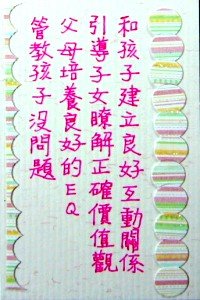 和孩子建立良好互動關係
引導子女瞭解正確價值觀
父母培養良好的EQ
管教孩子沒問題